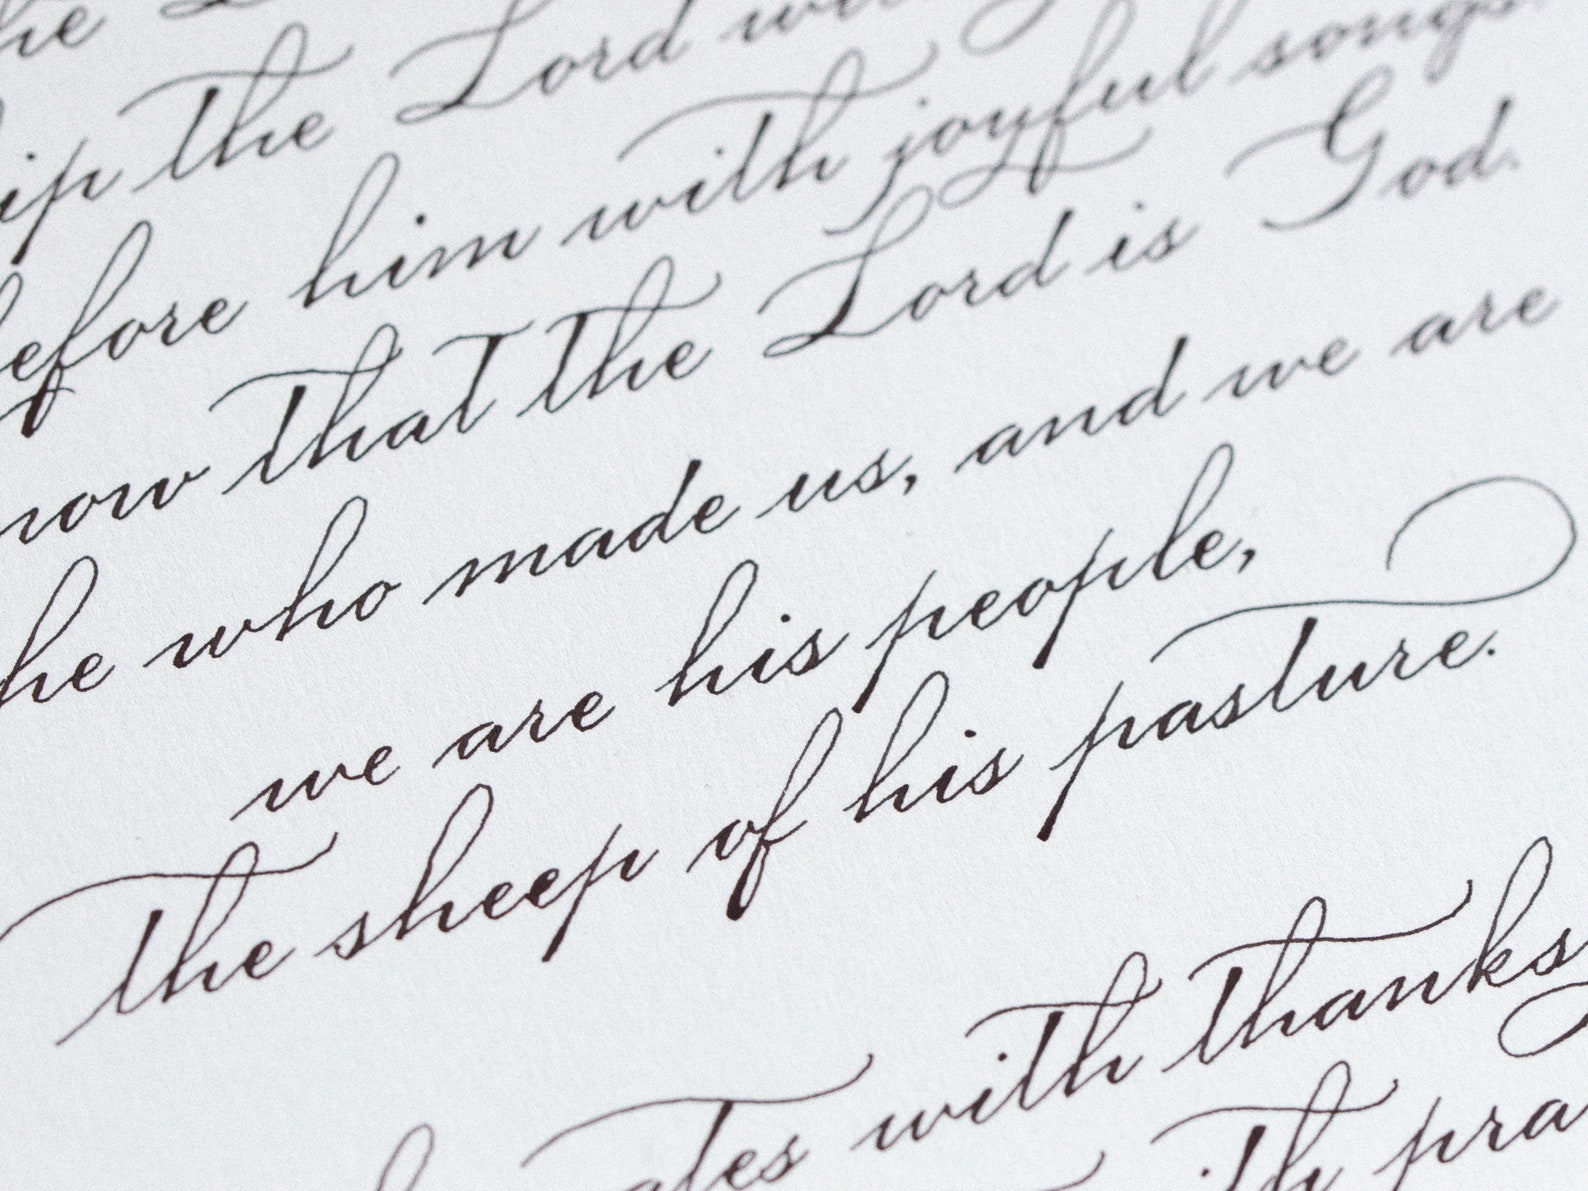 he
ip the Lord
before him with joyful songs.
now that the Lord is God.
he who made us, and we are
we are his people,
the sheep of his pasture.
ates with thanks
ith pra